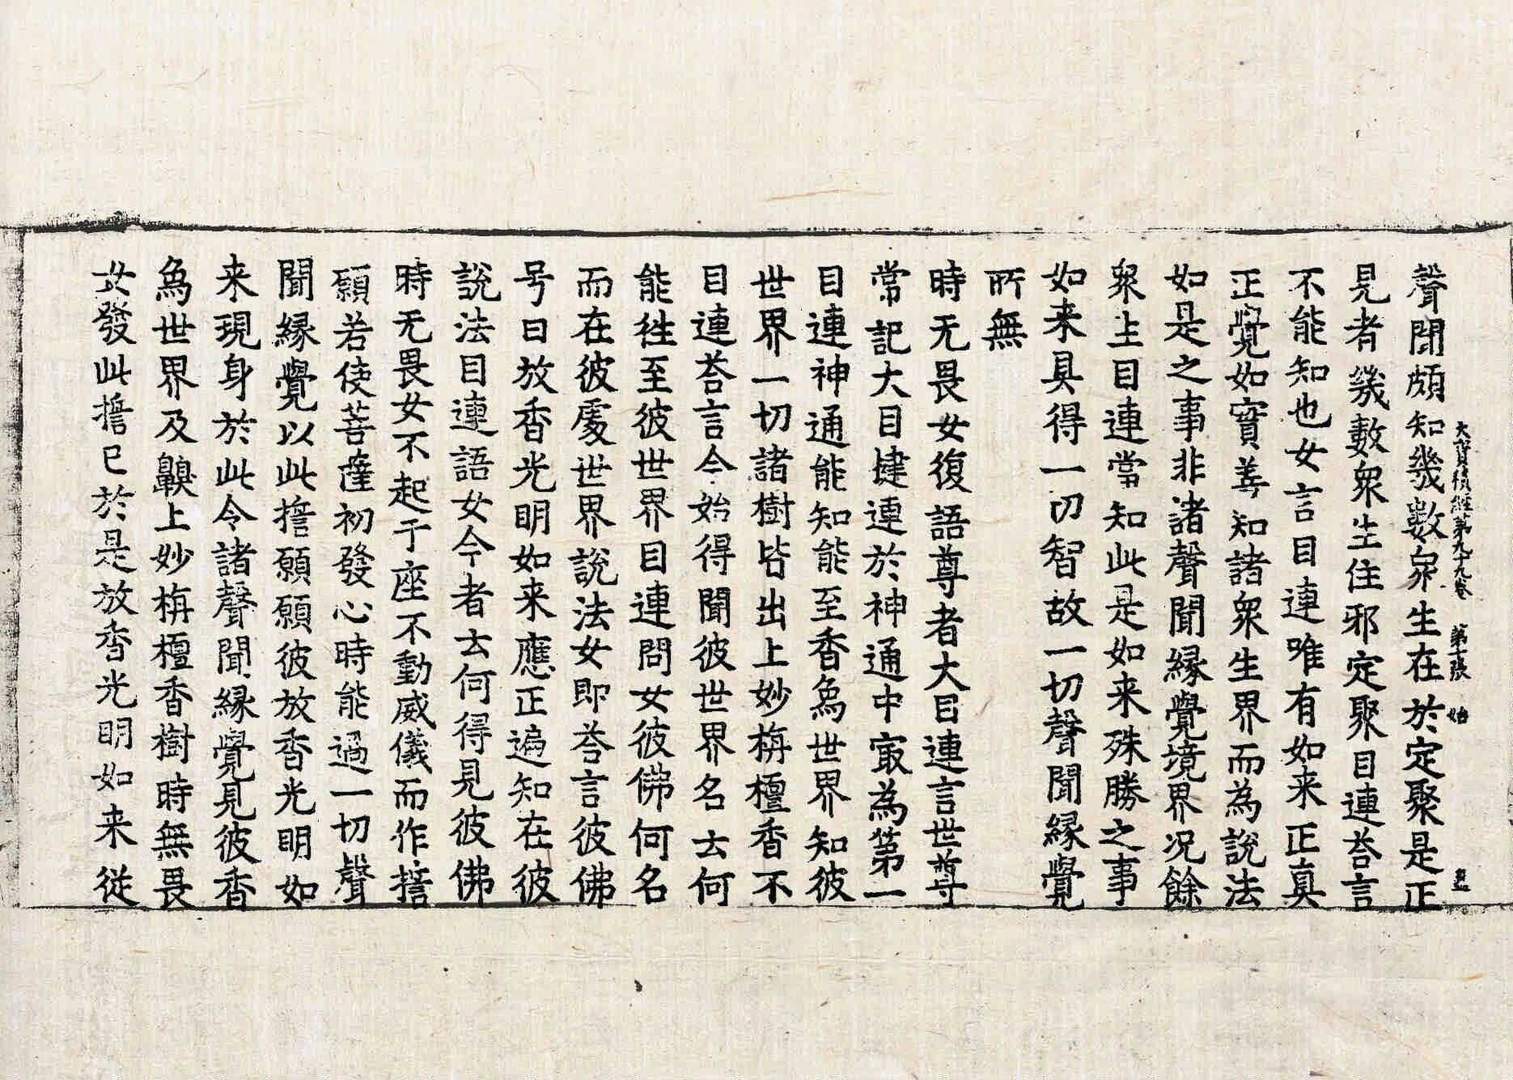 大寶積經第九十九卷　第十張　始
聲聞頗知幾數衆生在於定聚是正
見者幾數衆生住邪定聚目連荅言
不能知也女言目連唯有如来正真
正覺如實善知諸衆生界而為說法
如是之事非諸聲聞縁覺境界况餘
衆生目連當知此是如来殊勝之事
如来具得一切智故一切聲聞縁覺
所無
時无畏女復語尊者大目連言世尊
常記大目揵連於神通中寂為第一
目連神通能知能至香為世界知彼
世界一切諸樹皆出上妙栴檀香不
目連荅言今始得聞彼世界名云何
能往至彼世界目連問女彼佛何名
而在彼處世界說法女即荅言彼佛
号曰放香光明如来應正遍知在彼
說法目連語女今者云何得見彼佛
時无畏女不起于座不動威儀而作擔
願若使菩薩初發心時能過一切聲
聞縁覺以此擔願願彼放香光明如
来現身於此令諸聲聞縁覺見彼香
為世界及齅上妙栴檀香樹時無畏
女發此擔已於是放香光明如来従